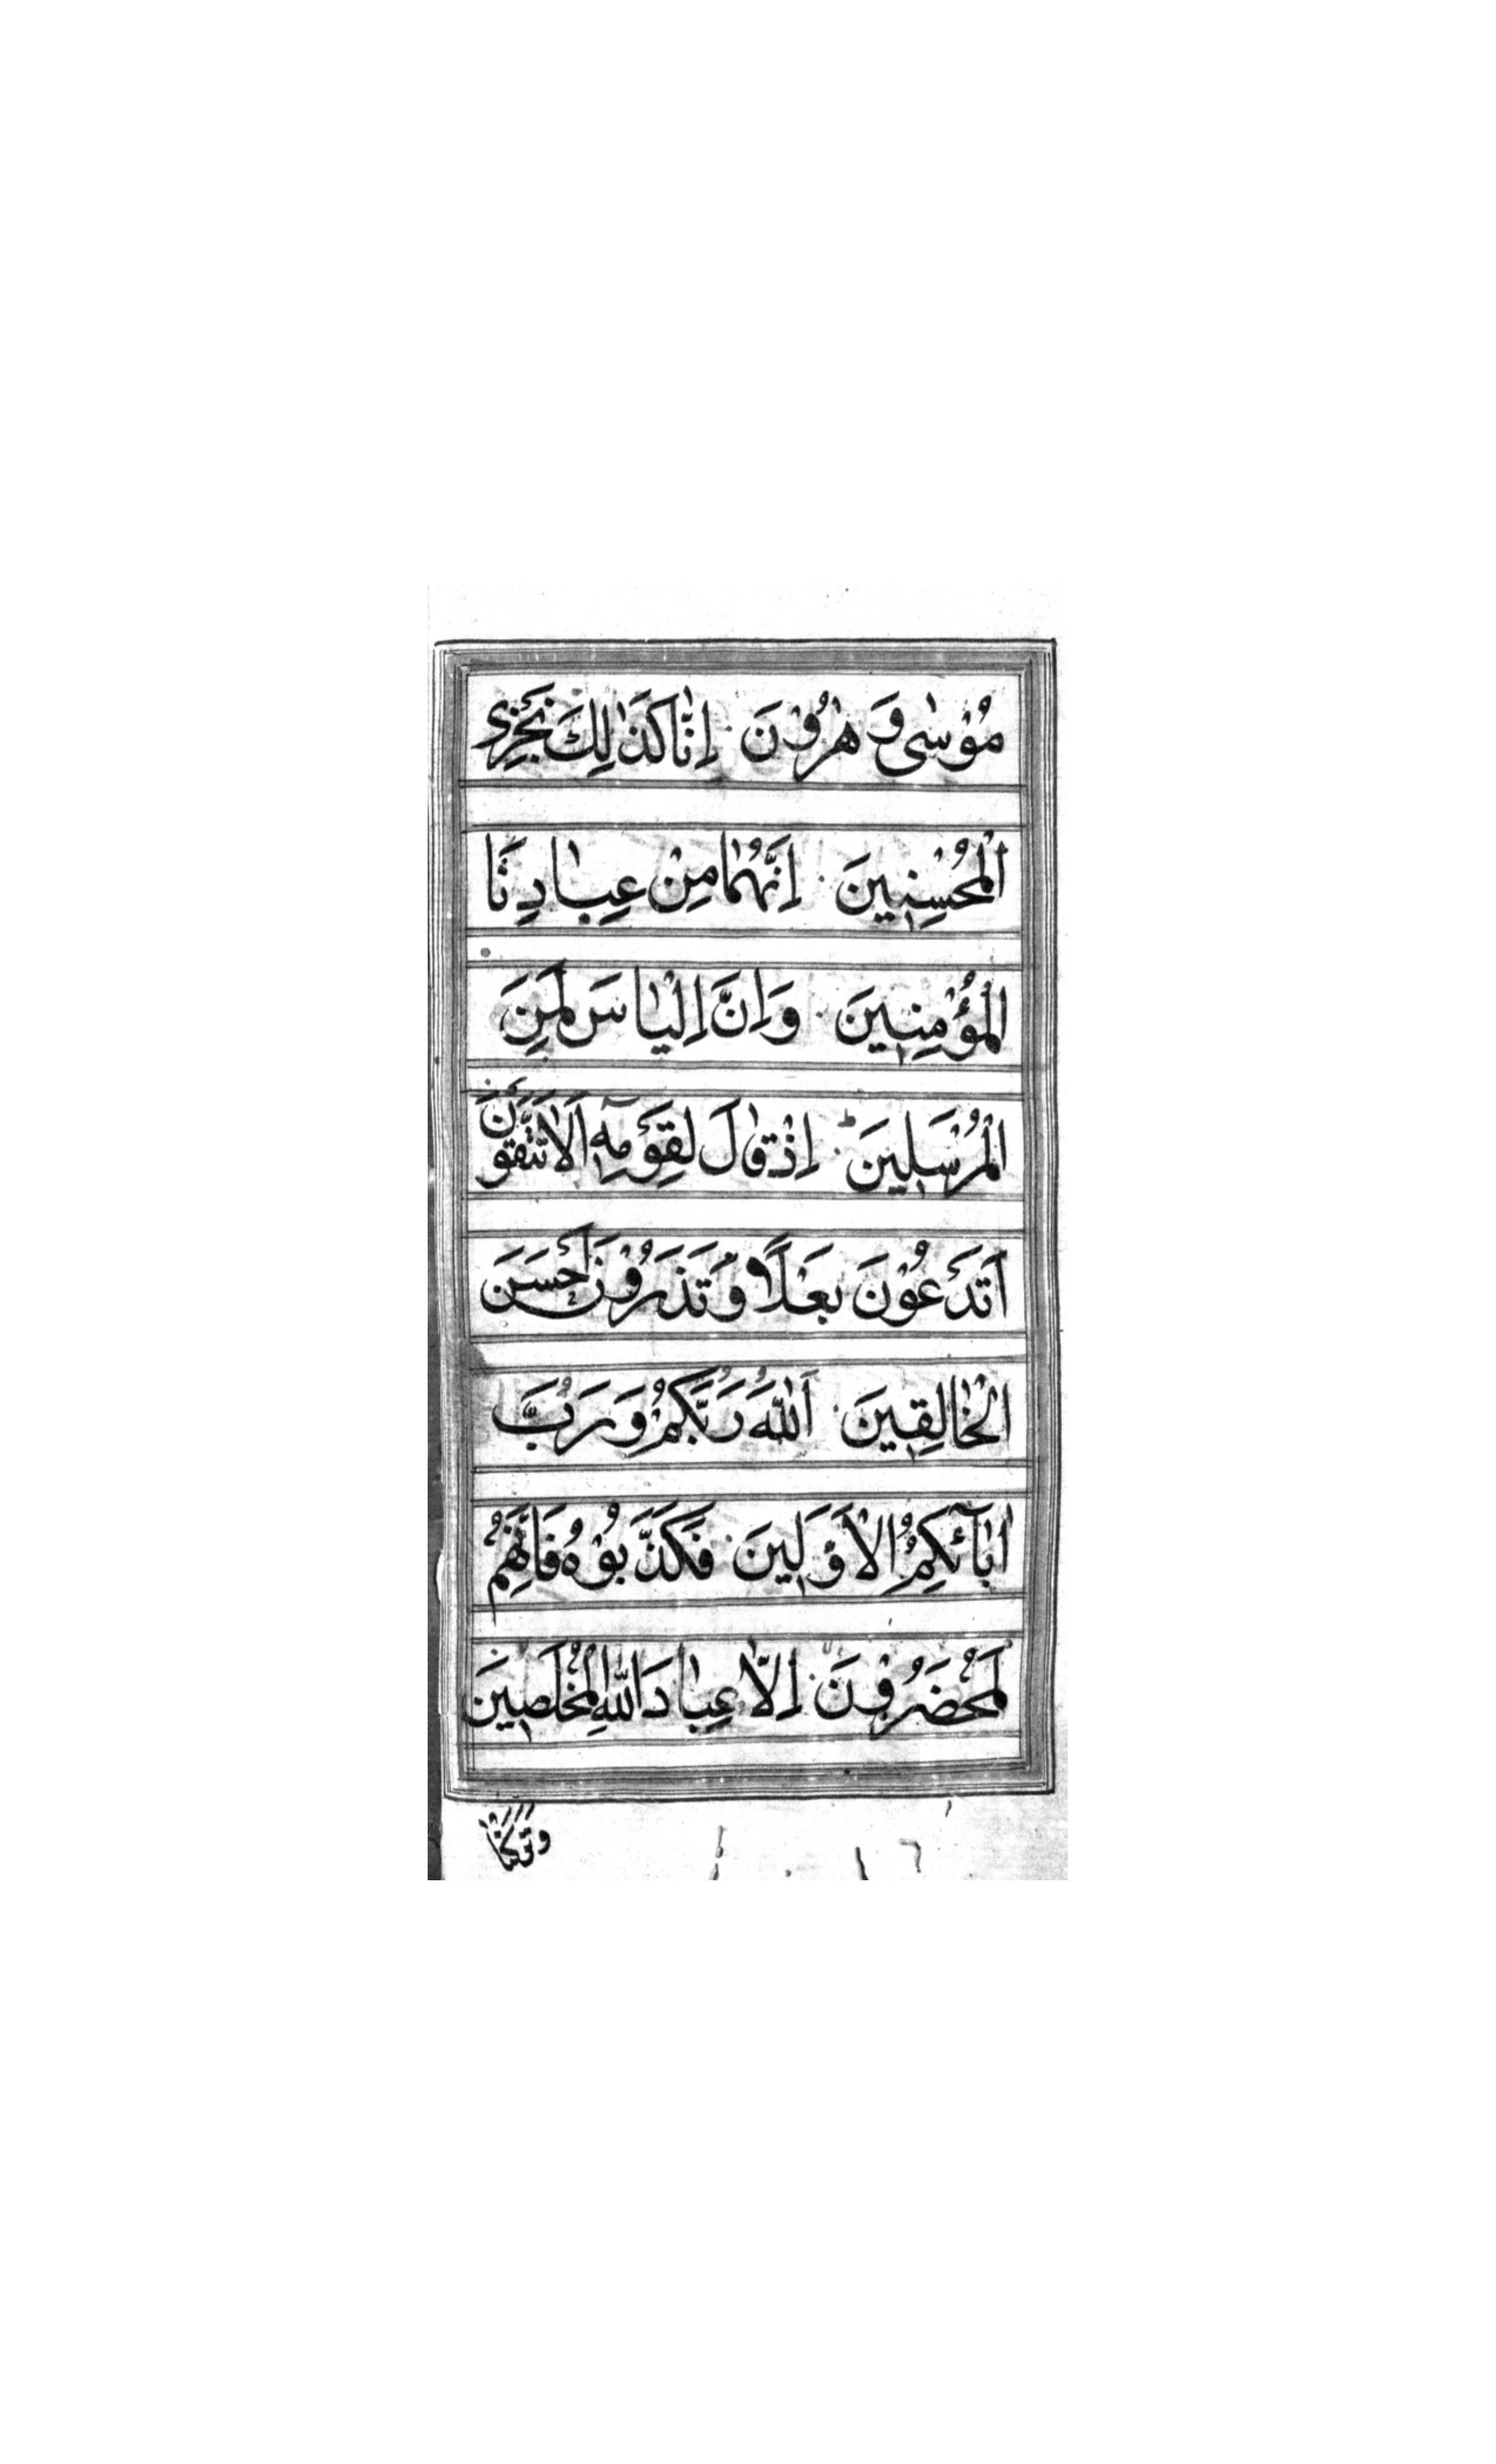 مُوْسٰى وَ هٰرُوْنَ اِنَّا كَذٰلِكَ نَجْزِى
الْمُحْسِنِينَ اِنَّهُمَا مِنْ عِبَادِنَا
الْمُؤْمِنِينَ وَاِنَّ اِلْيَاسَ لَمِنَ
الْمُرْسَلِينَ اِذْ قَالَ لِقَوْمِهٖٓ اَلَا تَتَّقُوْنَ
اَتَدْعُوْنَ بَعْلًا وَتَذَرُوْنَ اَحْسَنَ
الْخَالِقِينَ اَللّٰهَ رَبَّكُمْ وَرَبَّ
اٰبَآئِكُمُ الْاَوَّلِينَ فَكَذَّبُوْهُ فَاِنَّهُمْ
لَمُحْضَرُوْنَ اِلَّا عِبَادَ اللّٰهِ الْمُخْلَصِينَ
وَتَرَكْنَا